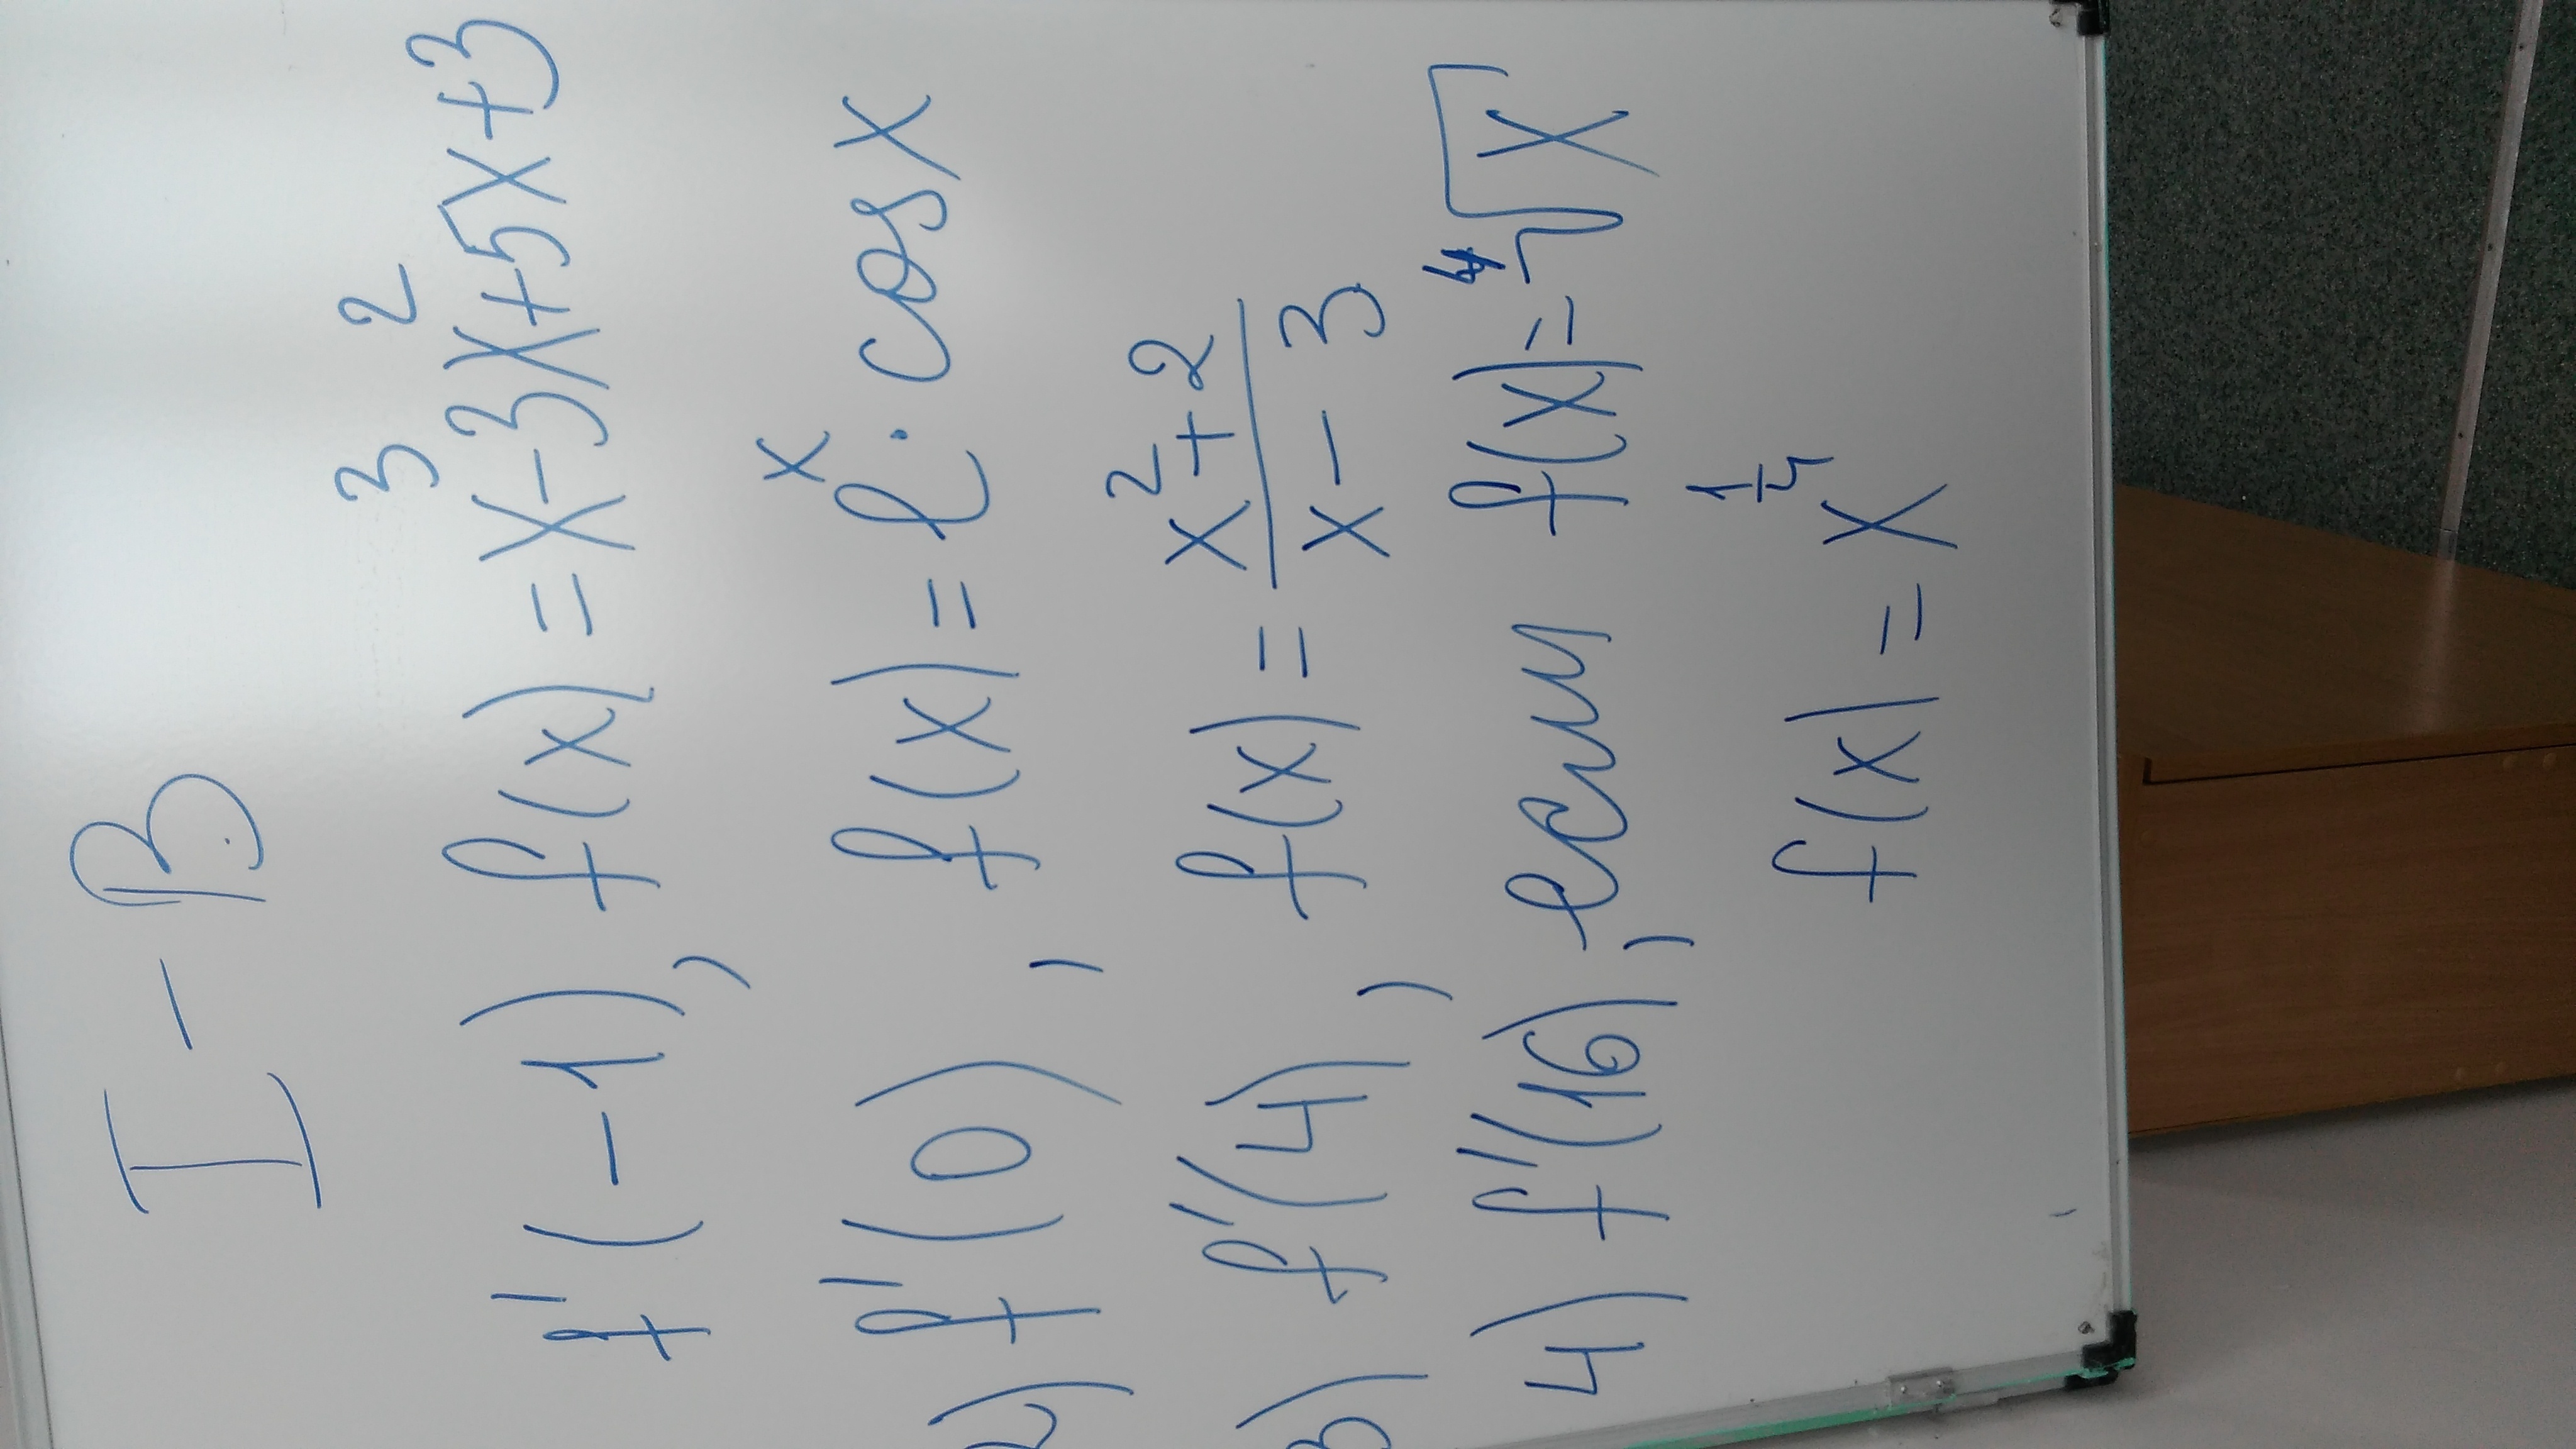 I - В
f'(-1), f(x) = x³-3x²+5x+3
2) f'(0), f(x) = eˣ · cos x
3) f'(4), f(x) = (x²+2)/(x-3)
4) f'(16), если f(x) = ⁴√x
f(x) = x^(1/4)